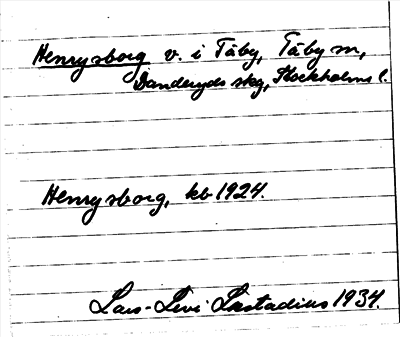 Henrysborg v. i Täby, Täby sn,
Danderyds skg, Stockholms l.
Henrysborg, kb 1924.
Lars-Levi Læstadius 1934.